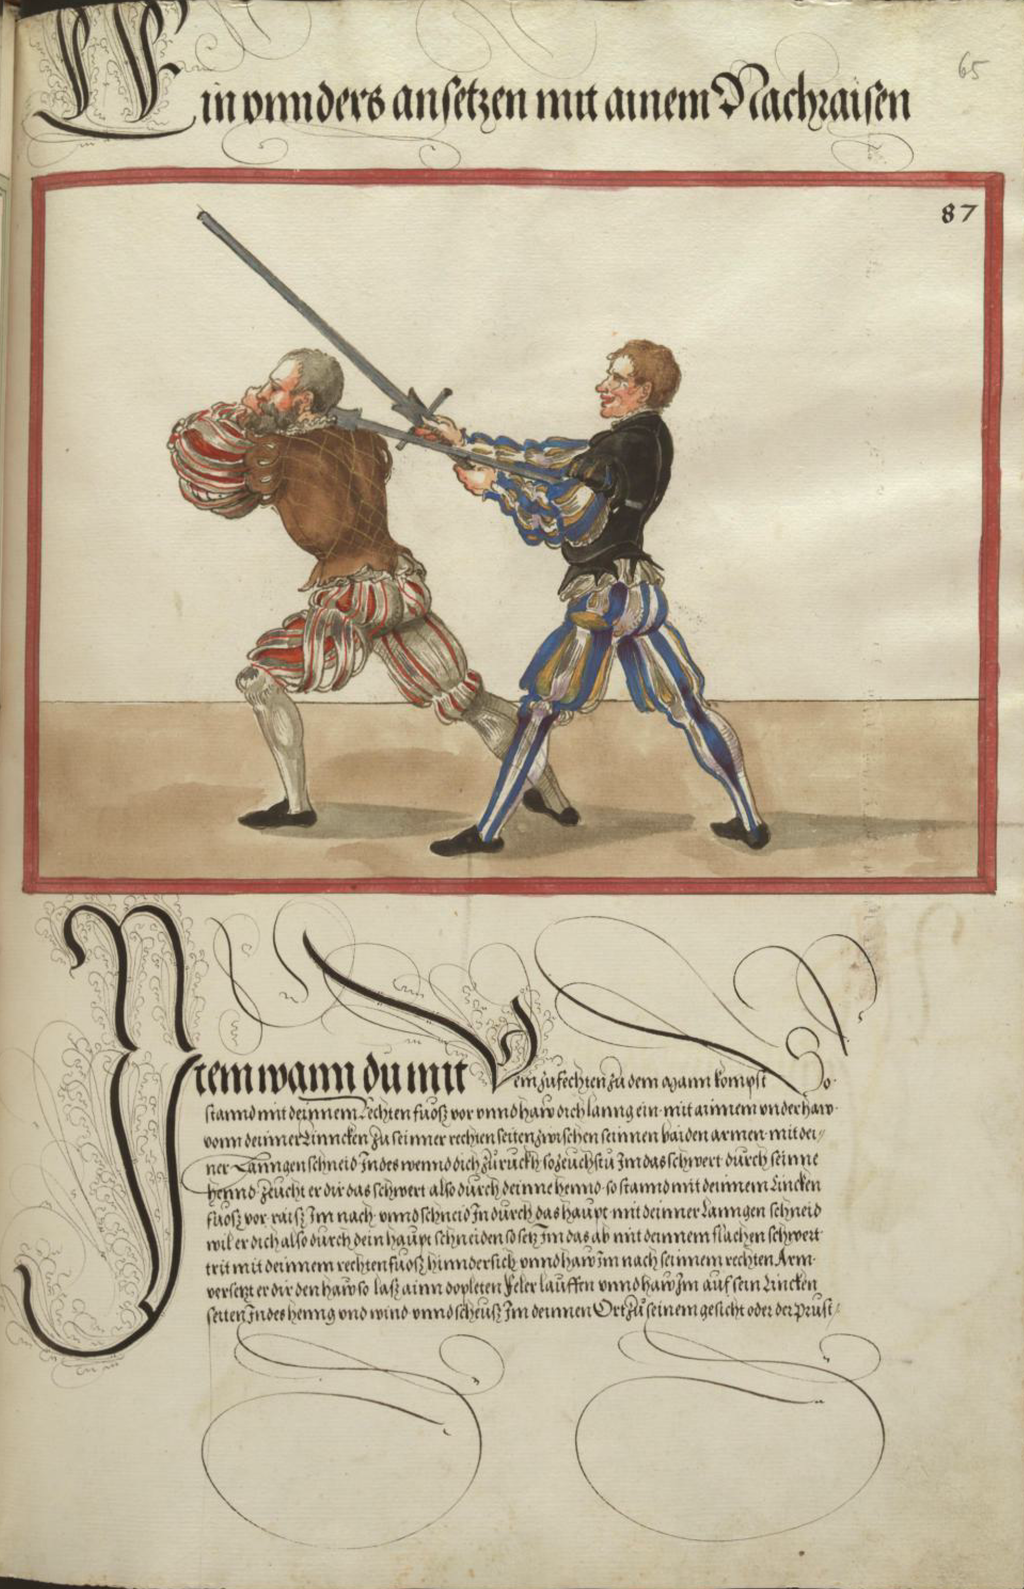 65
Ein unnders ansetzen mit ainem Nachraisen
87
Item wann du mit Dem zufechten zu dem Mann kompst So
stannd mit deinnem Rechten fuosz vor unnd haw dich lanng ein mit ainnem underhaw
vonn deinner Linncken zu seinner rechten seiten zwischen seinnen baiden armen mit dei
ner Lanngen schneid Indes wennd dich zuruckh so zeuchstu Im das schwert durch seinne
henno zeucht er dir das schwert also durch deinne henno so stannd mit deinnem Lincken
fuosz vor raisz Im nach unnd schneid In durch das haupt mit deinner Lanngen schneid
wil er dich also durch dein haupt schneiden so setz Im das ab mit deinnem flachen schwert
trit mit deinnem rechten fuosz hinndersich unnd haw Im nach seinem rechten Arm
versetzt er dir den haw so lasz ainn dopleten Feler lauffen unnd haw Im auf sein Lincken
seiten Indes henng und wind unnd scheusz Im deinnen Ort zu seinem gesicht oder der prust